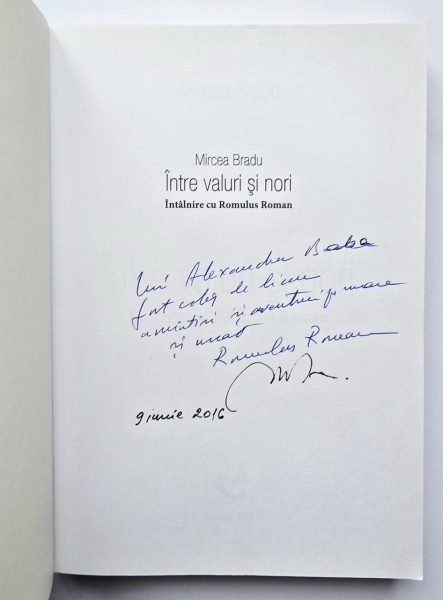 Mircea Bradu
Între valuri și nori
Întâlnire cu Romulus Roman
Lui Alexandru Baba
fost coleg de liceu
amintiri și aventuri pe mare
și uscat
Romulus Roman
9 iunie 2016